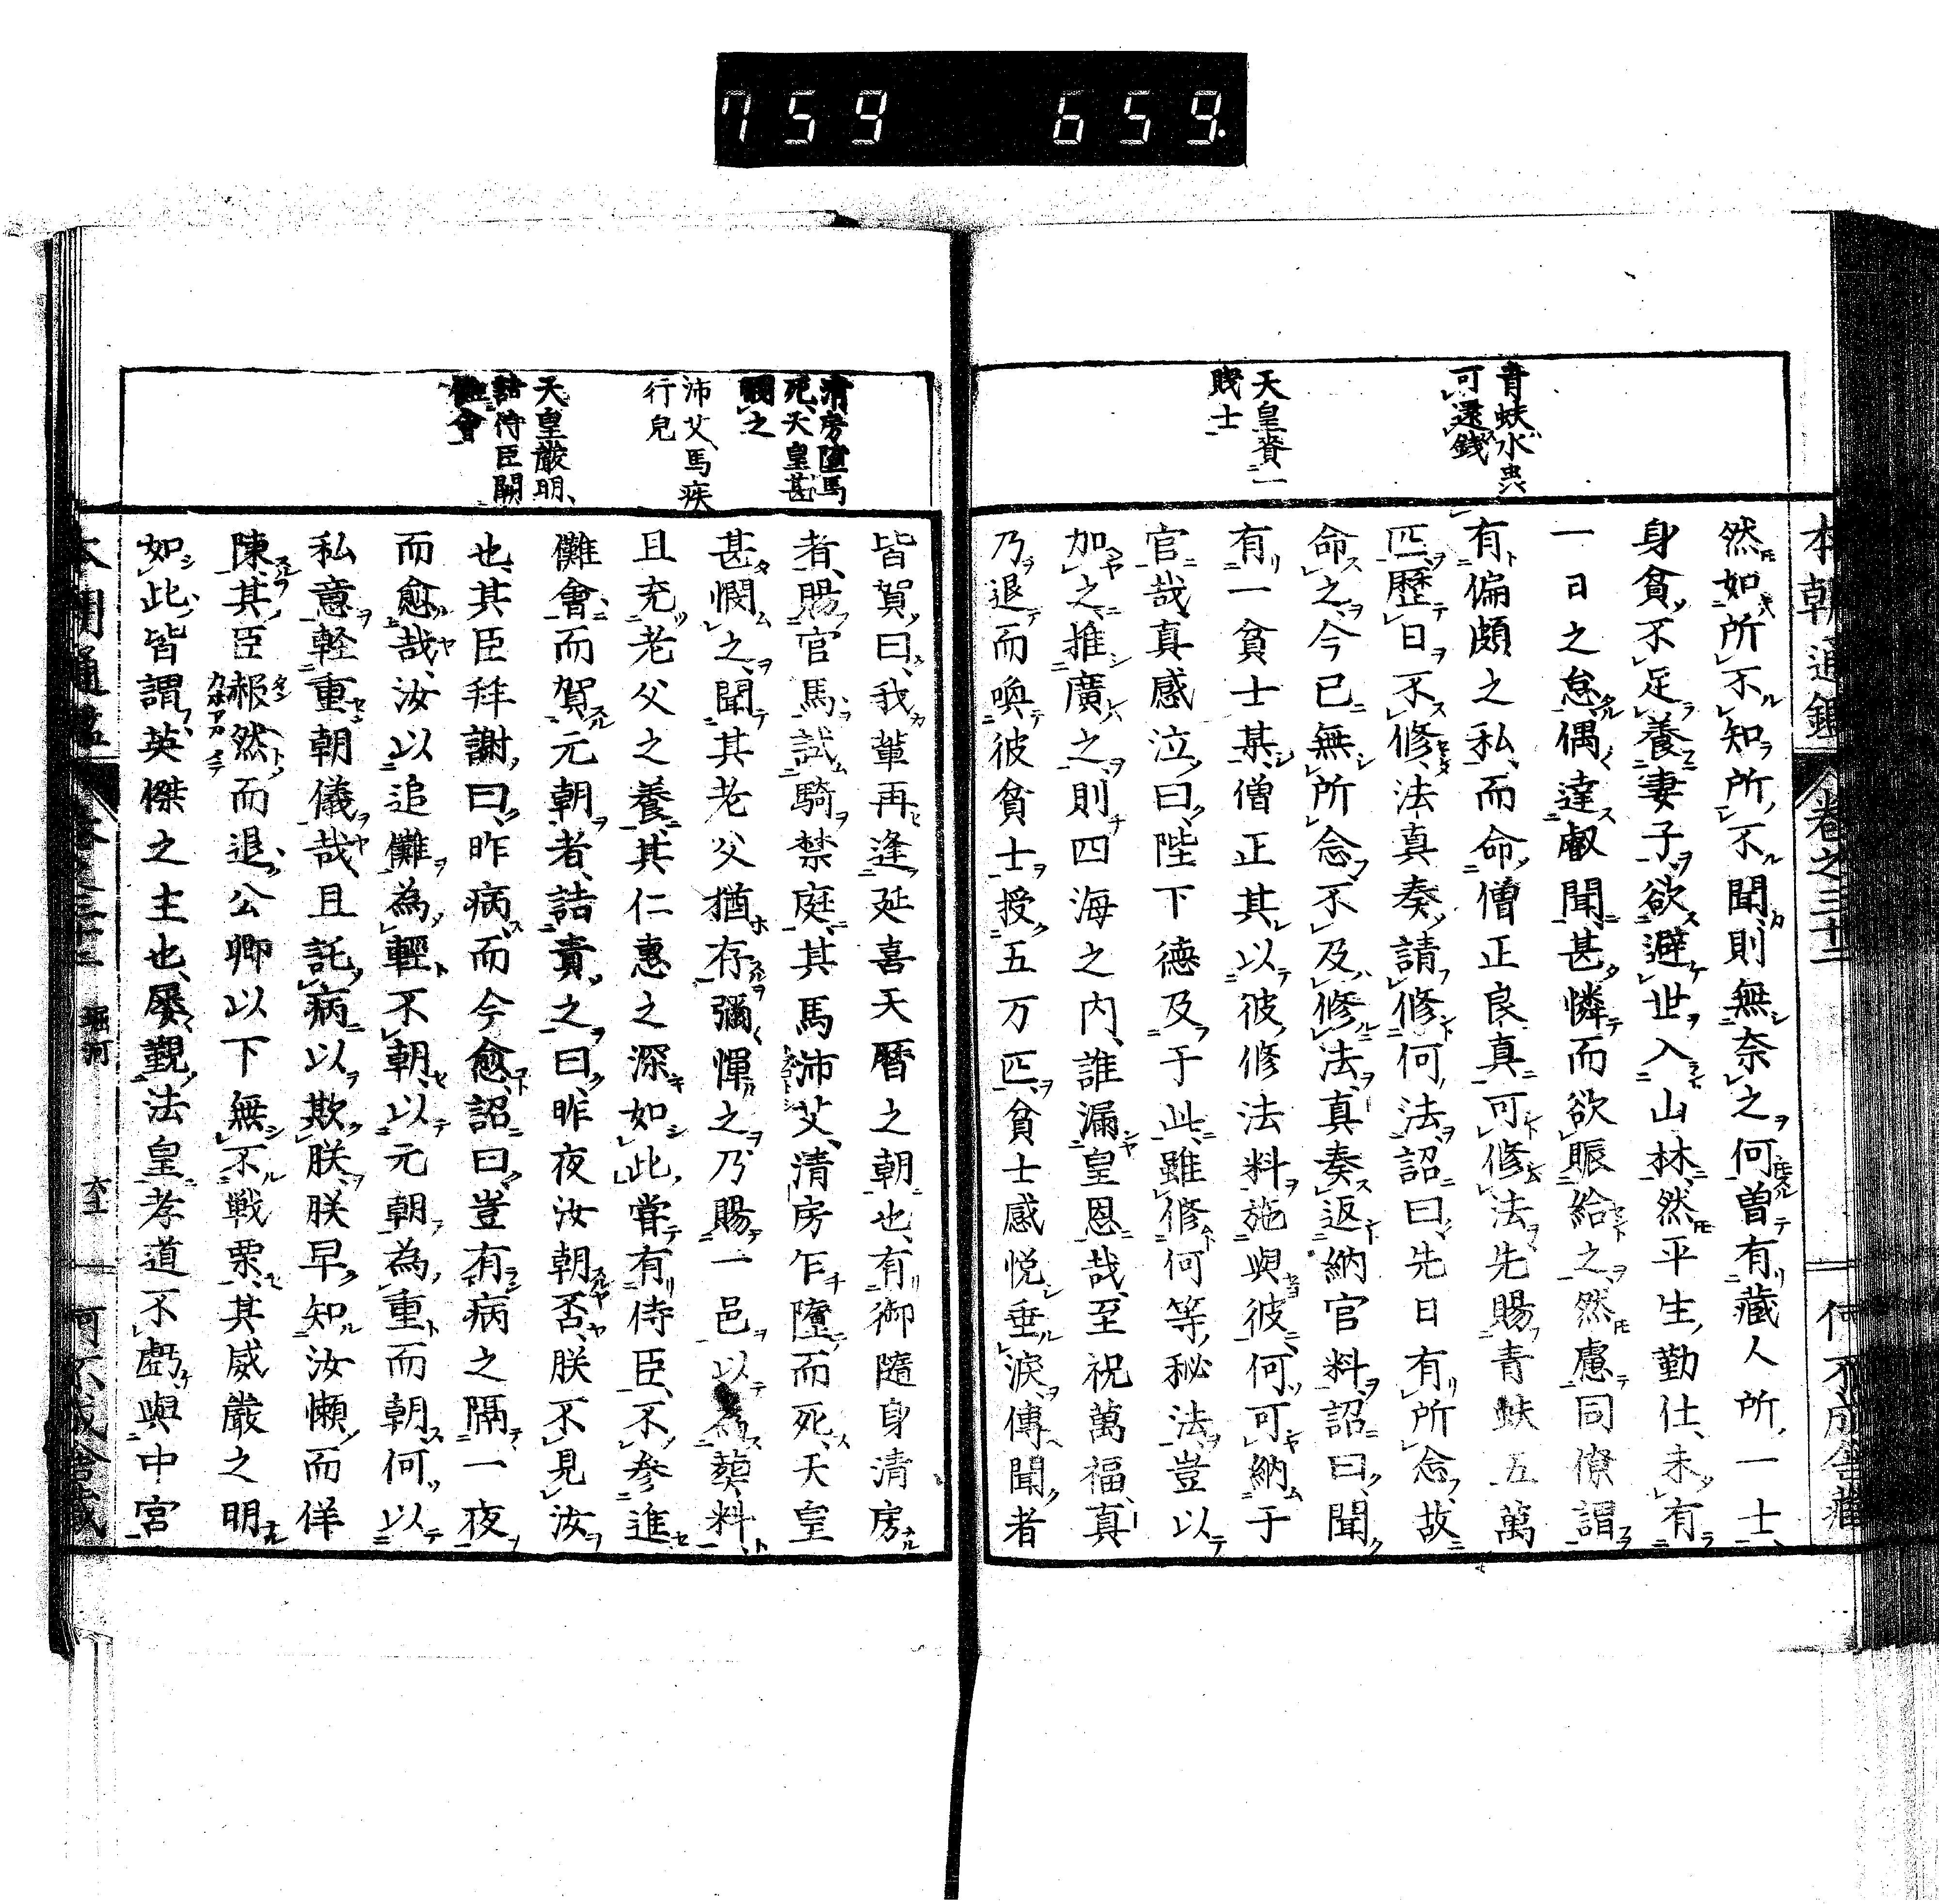 759 659.
本朝通鑑 卷之三十二 何不成舍藏
青蚨水虫
可還錢
天皇賚一
賤士
然如所不知所不聞則無奈之何曽有藏人所一士
身貧不足養妻子欲避世入山林然平生勤仕未有
一日之怠偶達叡聞甚憐而欲賑給之然慮同僚謂
有偏頗之私而命僧正良真可修法先賜青蚨五萬
匹歷日不修法真奏請修何法詔曰先日有所念故
命之今已無所念不及修法真奏返納官料詔曰聞
有一貧士某僧正其以彼修法料施與彼何可納于
官哉真感泣曰陛下德及于此雖修何等秘法豈以
加之推廣之則四海之内誰漏皇恩哉至祝萬福真
乃退而喚彼貧士授五万匹貧士感悦垂淚傳聞者
清房墮馬
死天皇甚
憫之
沛艾馬疾
行皃
天皇嚴明
詰侍臣闕
儺會
皆賀曰我輩再逢延喜天曆之朝也有御隨身清房
者賜官馬試騎禁庭其馬沛艾清房乍墮而死天皇
甚憫之聞其老父猶存彌憚之乃賜一邑以為葬料
且充老父之養其仁惠之深如此嘗有侍臣不參進
儺會而賀元朝者詰責之曰昨夜汝朝否朕不見汝
也其臣拜謝曰昨病而今愈詔曰豈有病之隔一夜
而愈哉汝以追儺為輕不朝以元朝為重而朝何以
私意軽重朝儀哉且託病以欺朕朕早知汝懶而佯
陳其臣赧然而退公卿以下無不戦栗其威嚴之明
如此皆謂英傑之主也屡覲法皇孝道不虧與中宮
本朝通鑑 卷之三十二 堀河 六十五 何不成舍藏